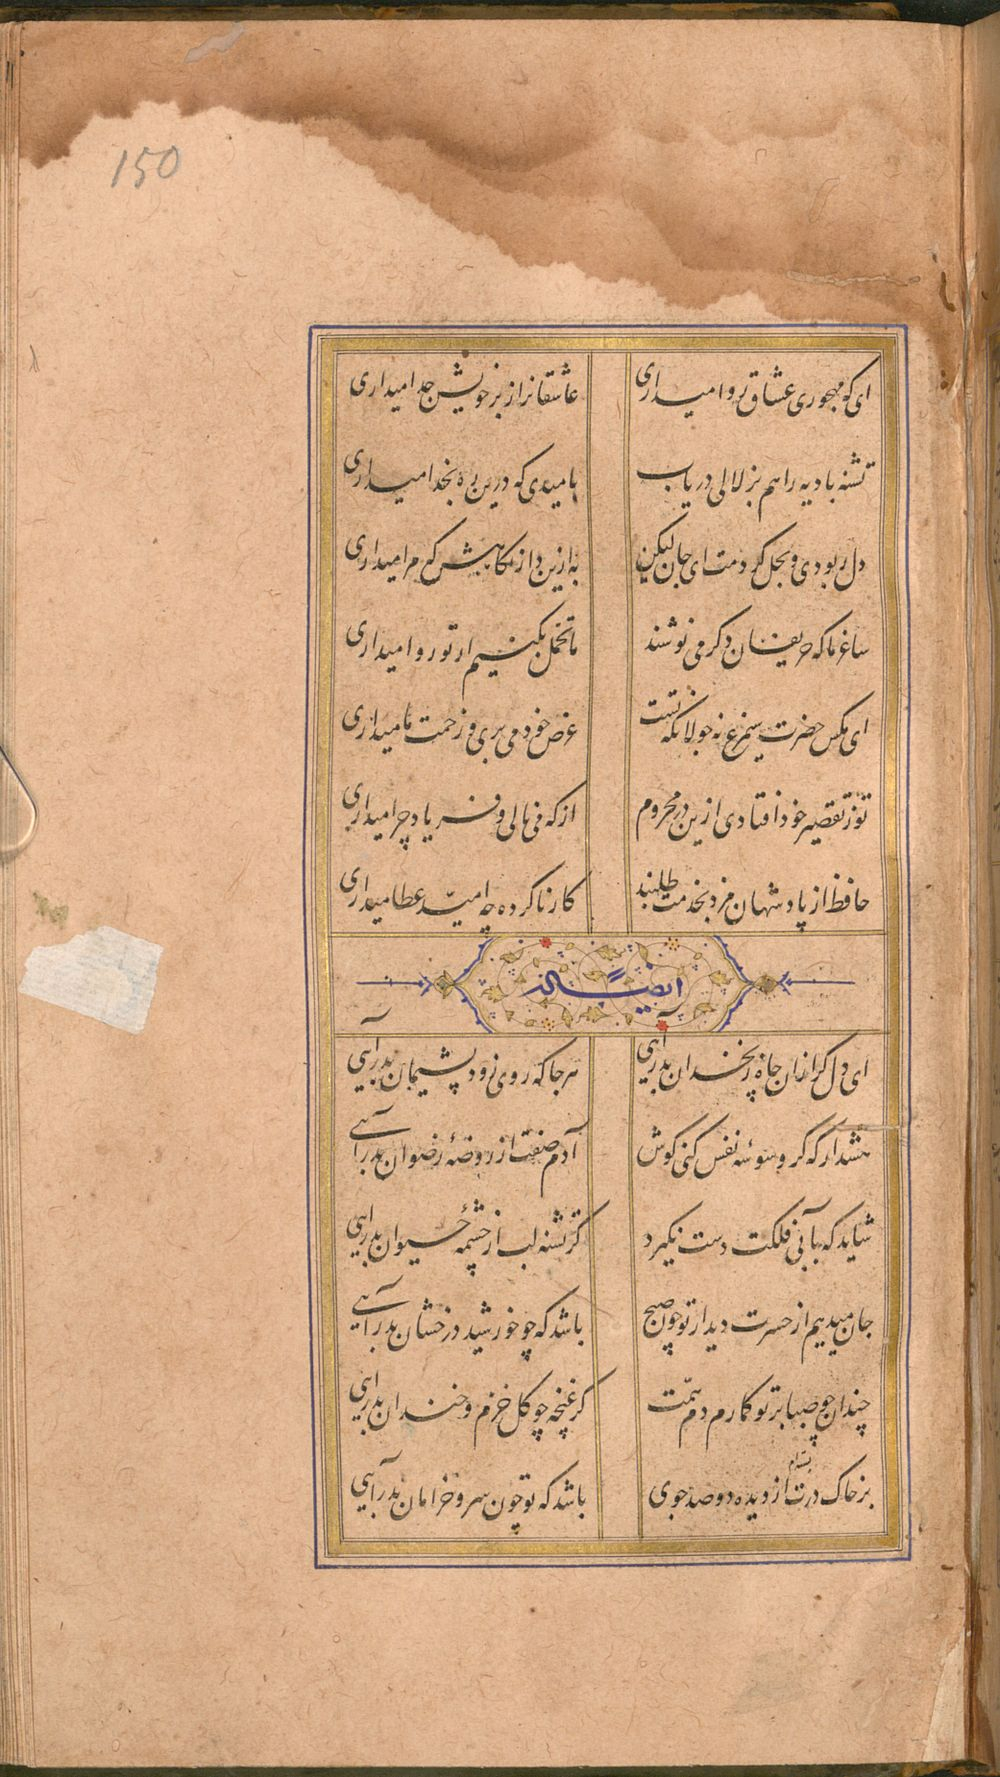 150
ای که مهجوری عشاق روا میداری
عاشقانرا ز بر خویش جدا میداری
تشنه بادیه را هم بزلالی دریاب
بامیدی که درین ره بخدا میداری
دل ربودی و بحل کردمت ای جان لیکن
به ازین دار نگاهش که مرا میداری
ساغر ما که حریفان دگر می نوشند
ما تحمل بکنیم ار تو روا میداری
ای مگس حضرت سیمرغ نه جولانگه تست
عرض خود می بری و زحمت ما میداری
تو ز تقصیر خود افتادی ازین در محروم
از که می نالی و فریاد چرا میداری
حافظ از پادشهان مزد بخدمت طلبند
کار ناکرده چه امید عطا میداری
ایضاً له
ای دل گر ازان چاه زنخدان بدر آیی
هر جا که روی زود پشیمان بدر آیی
هشدار که گر وسوسه نفس کنی گوش
آدم صفت از روضهٔ رضوان بدر آیی
شاید که بآبی فلکت دست نگیرد
گر تشنه لب از چشمهٔ حیوان بدر آیی
جان میدهم از حسرت دیدار تو چون صبح
باشد که چو خورشید درخشان بدر آیی
چندان چو صبا بر تو گمارم دم همت
کز غنچه چو گل خرم و خندان بدر آیی
بر خاک درت بستم از دیده دو صد جوی
باشد که تو چون سرو خرامان بدر آیی